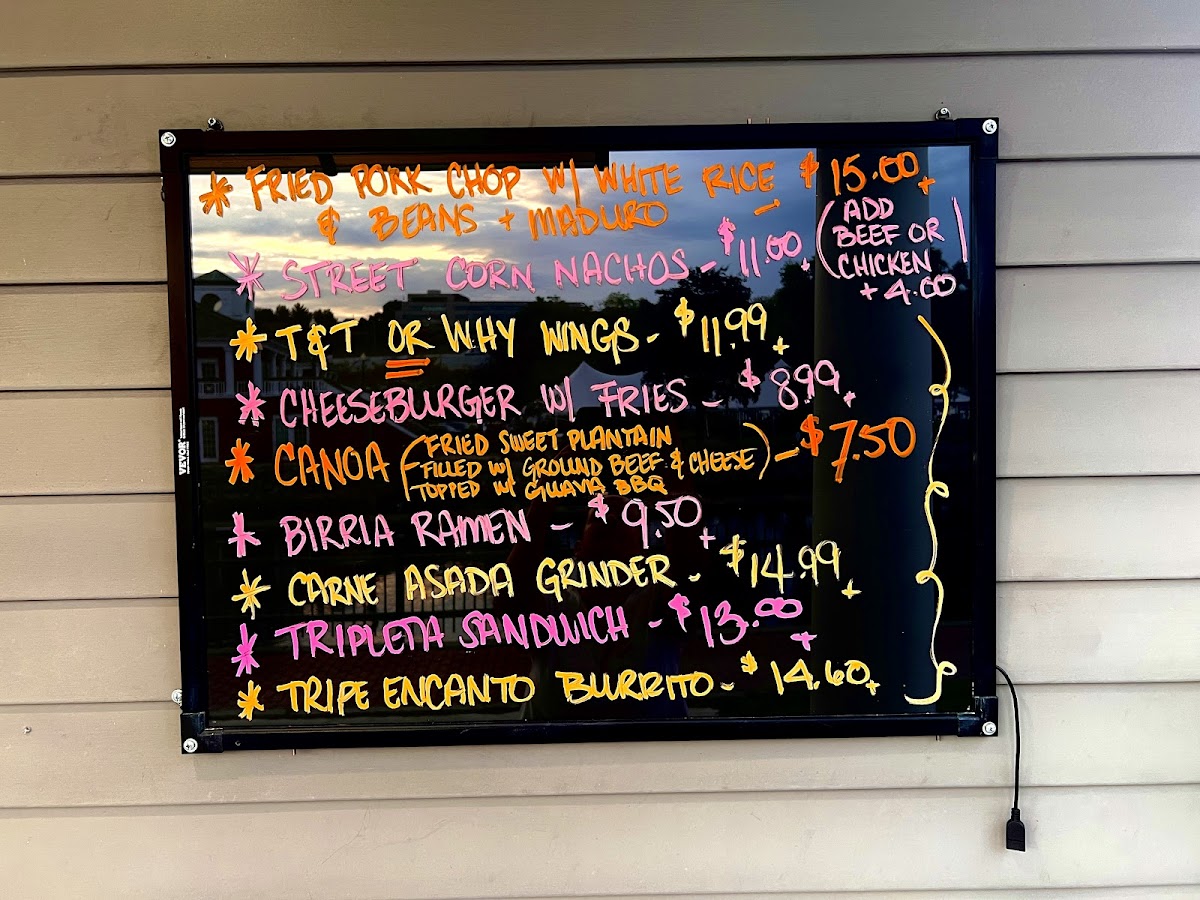 * FRIED PORK CHOP W/ WHITE RICE $15.00+
& BEANS + MADURO
* STREET CORN NACHOS - $11.00+ (ADD
BEEF OR
CHICKEN
+ 4.00)
* T&T OR WHY WINGS - $11.99+
* CHEESEBURGER W/ FRIES - $8.99+
* CANOA (FRIED SWEET PLANTAIN
FILLED W/ GROUND BEEF & CHEESE
TOPPED W/ GUAVA BBQ) - $7.50
* BIRRIA RAMEN - $9.50+
* CARNE ASADA GRINDER - $14.99+
* TRIPLETA SANDWICH - $13.00+
* TRIPE ENCANTO BURRITO - $14.60+
VEVOR